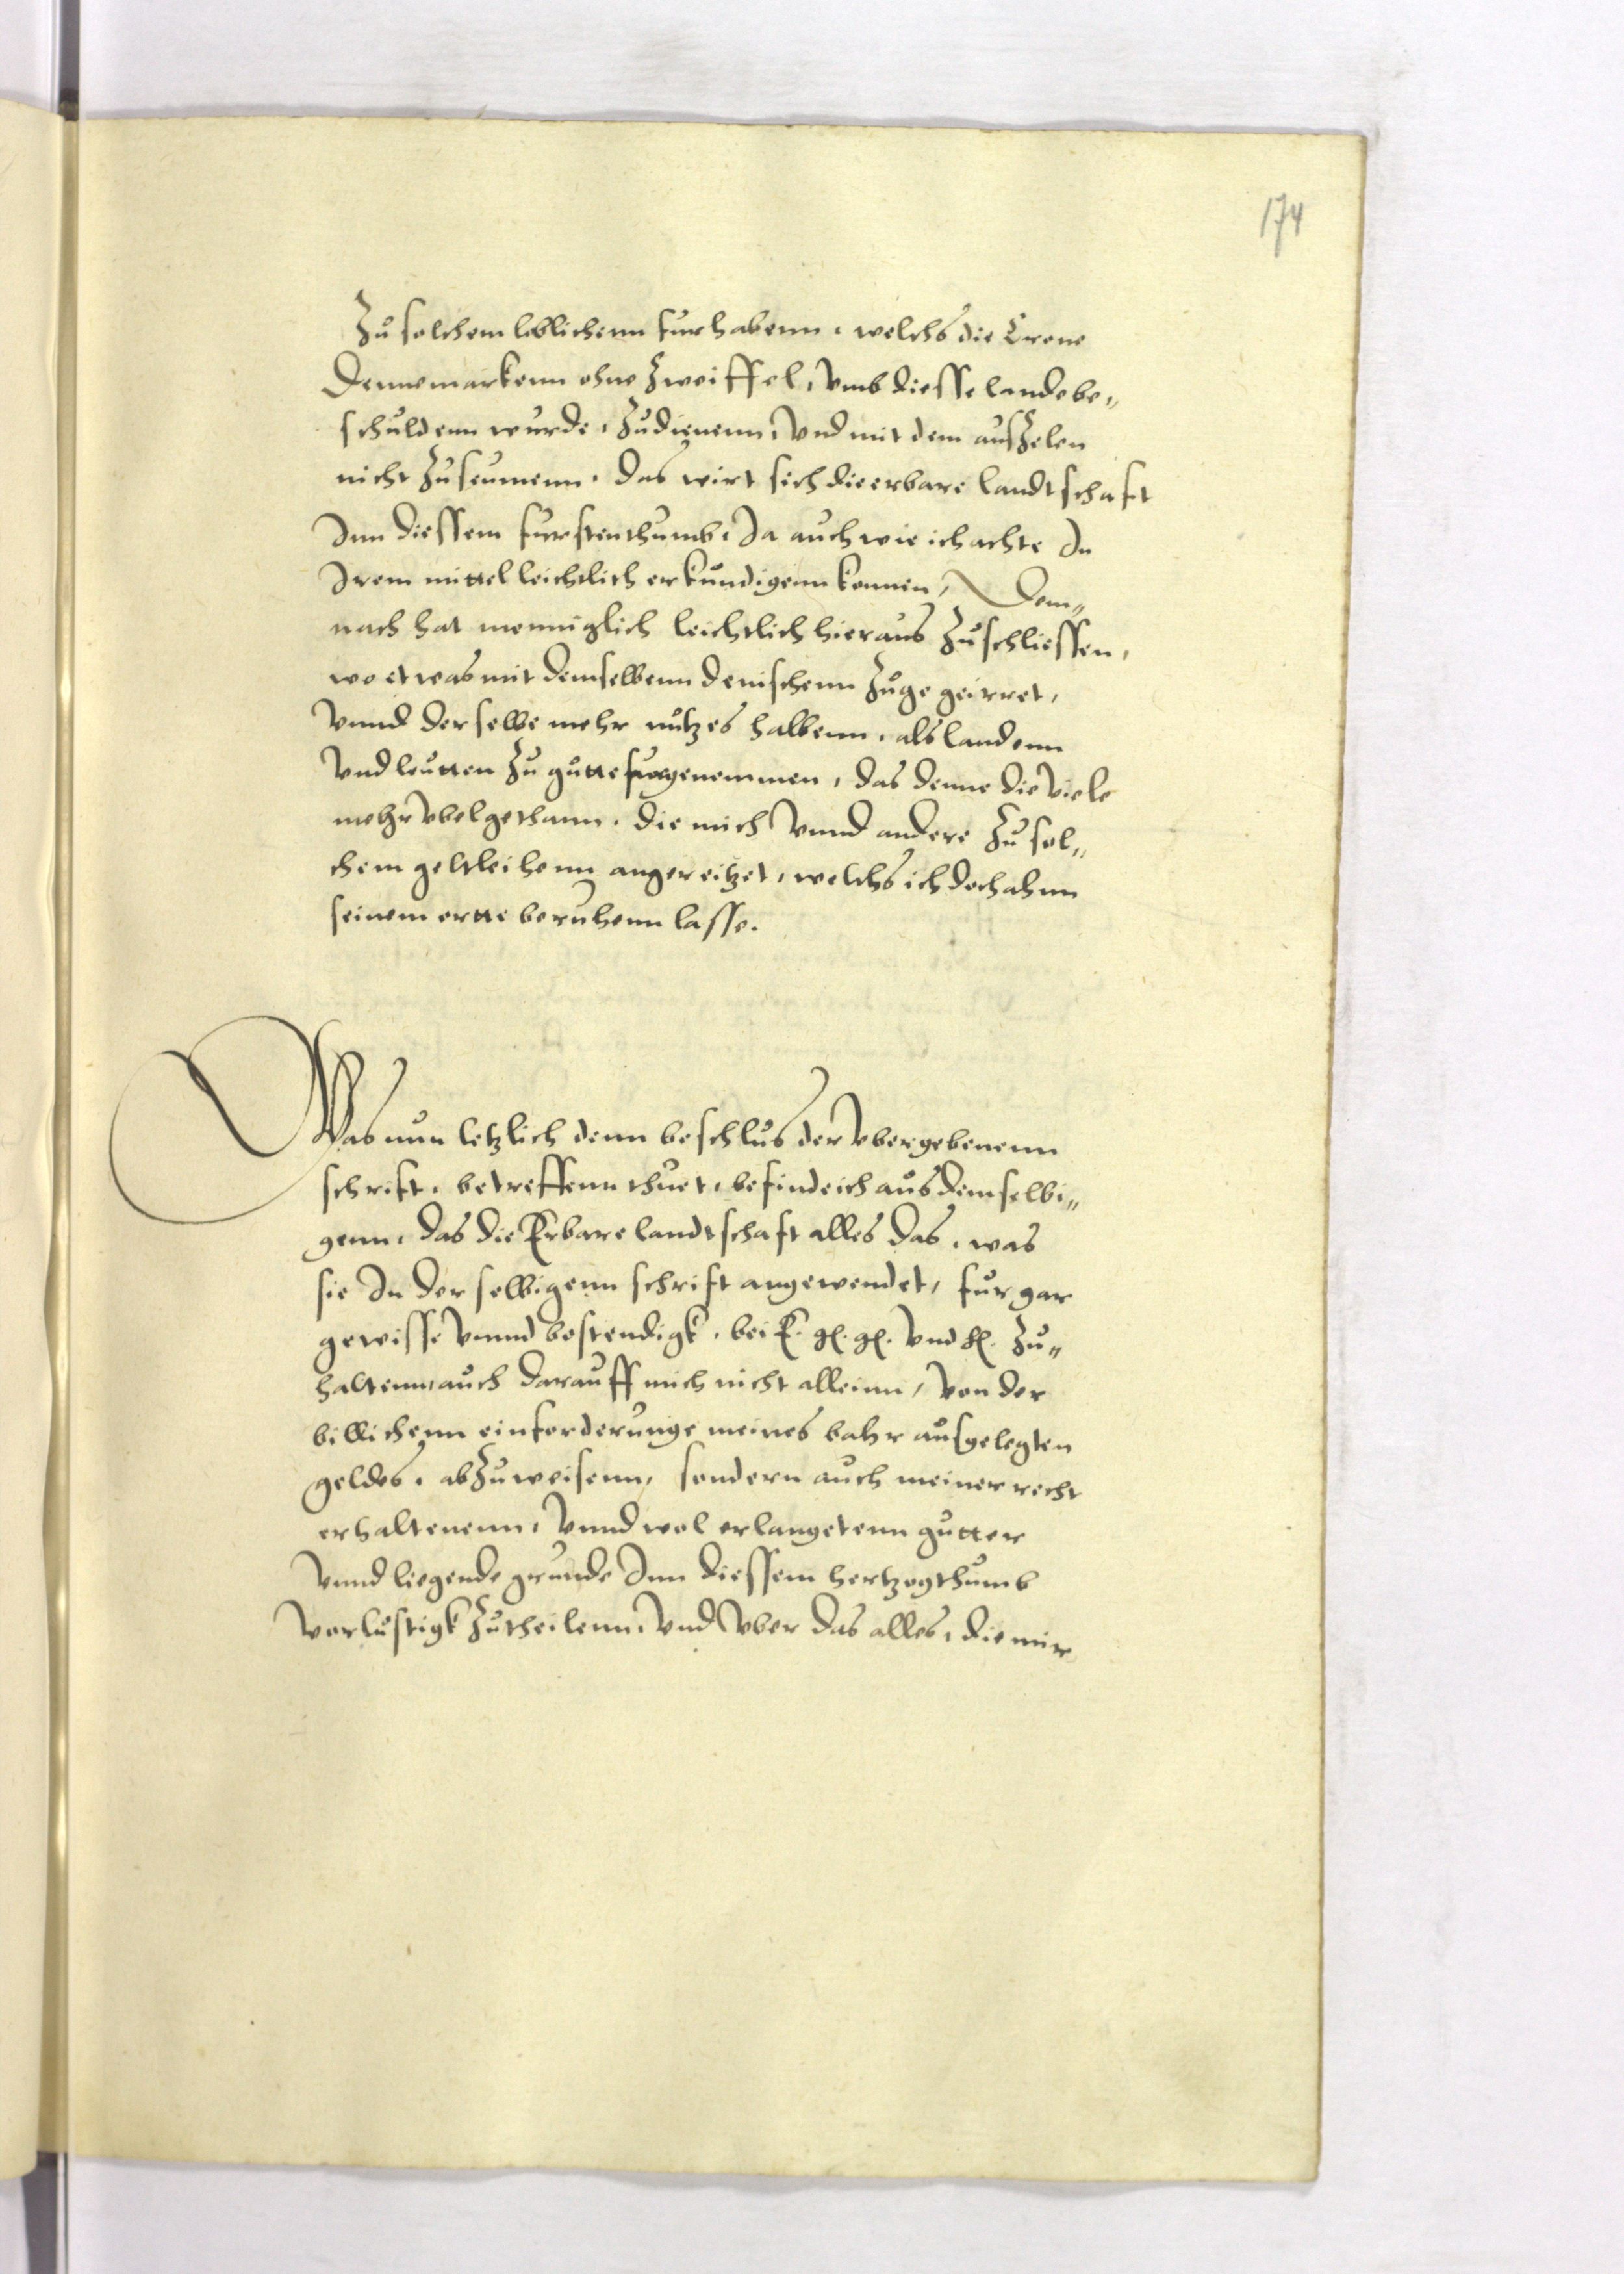 174
Zu solchem loblichenn furhabenn, welchs die Crone
Dennemarkenn ohne Zweiffel, vmb diesse lande be„
schuldenn wurde, Zudienenn, vnd mit dem auszelen
nicht Zuseumenn. das wirt sich die erbare landtschaft
Inn diessem furstenthumb, Ja auch wie ich achte In
Irem mittel leichtlich erkundigenn konnen, Dem„
nach hat menniglich leichtlich hieraus Zuschliessen,
wo etwas mit demselbenn denischenn Zuge geirret,
vnnd derselbe mehr nutzes halbenn, als landenn
vnd leutten Zu gutte furgenommen, das denne die viele
mehr vbel gethann, die mich vnnd andere Zu sol„
chem geltleihenn angereitzet, welchs ich doch ahnn
seinem ortte beruhenn lasse.
Was nun letzlich denn beschlus der vbergebenenn
schrift, betreffenn thuet, befinde ich aus demselbi„
genn, das die Erbare landtschaft alles das, was
sie In der selbigenn schrift angewendet, fur gar
gewisse vnnd bestendigk, bei E. g. g. vnd h. Zu„
haltenn, auch darauff mich nicht alleinn, von der
billichenn einforderunge meines bahr ausgelegten
geldes, abzuweisenn, sondern auch meiner recht
erhaltenenn, vnnd wol erlangetenn gutter
vnnd liegende grunde Inn diessem hertzogthumb
vorlustigk Zutheilenn, vnd vber das alles, die mir